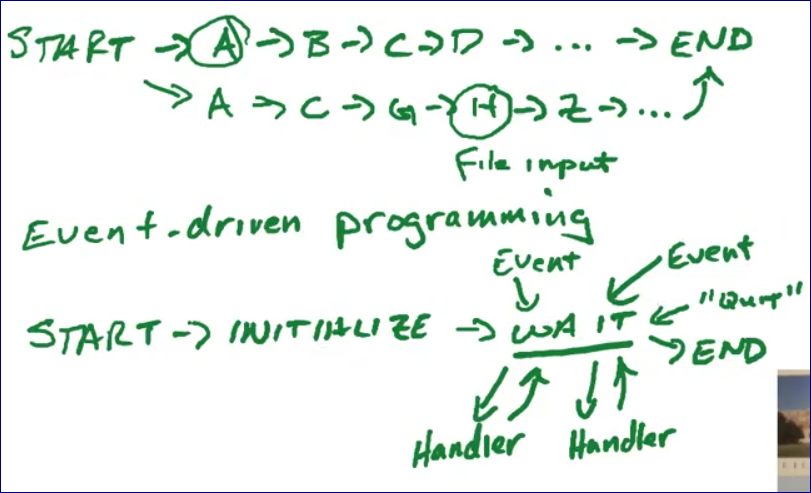 START → A → B → C → D → ... → END
→ A → C → G → H → Z → ...
File input
Event-driven programming
Event Event
"Quit"
START → INITIALIZE → WAIT
→ END
Handler Handler